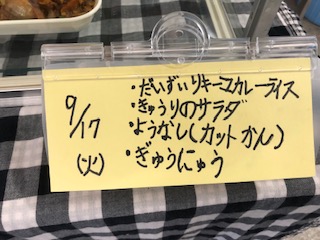 9/17
(火)
・だいずいりキーマカレーライス
・きゅうりのサラダ
・ようなし(カットかん)
・ぎゅうにゅう